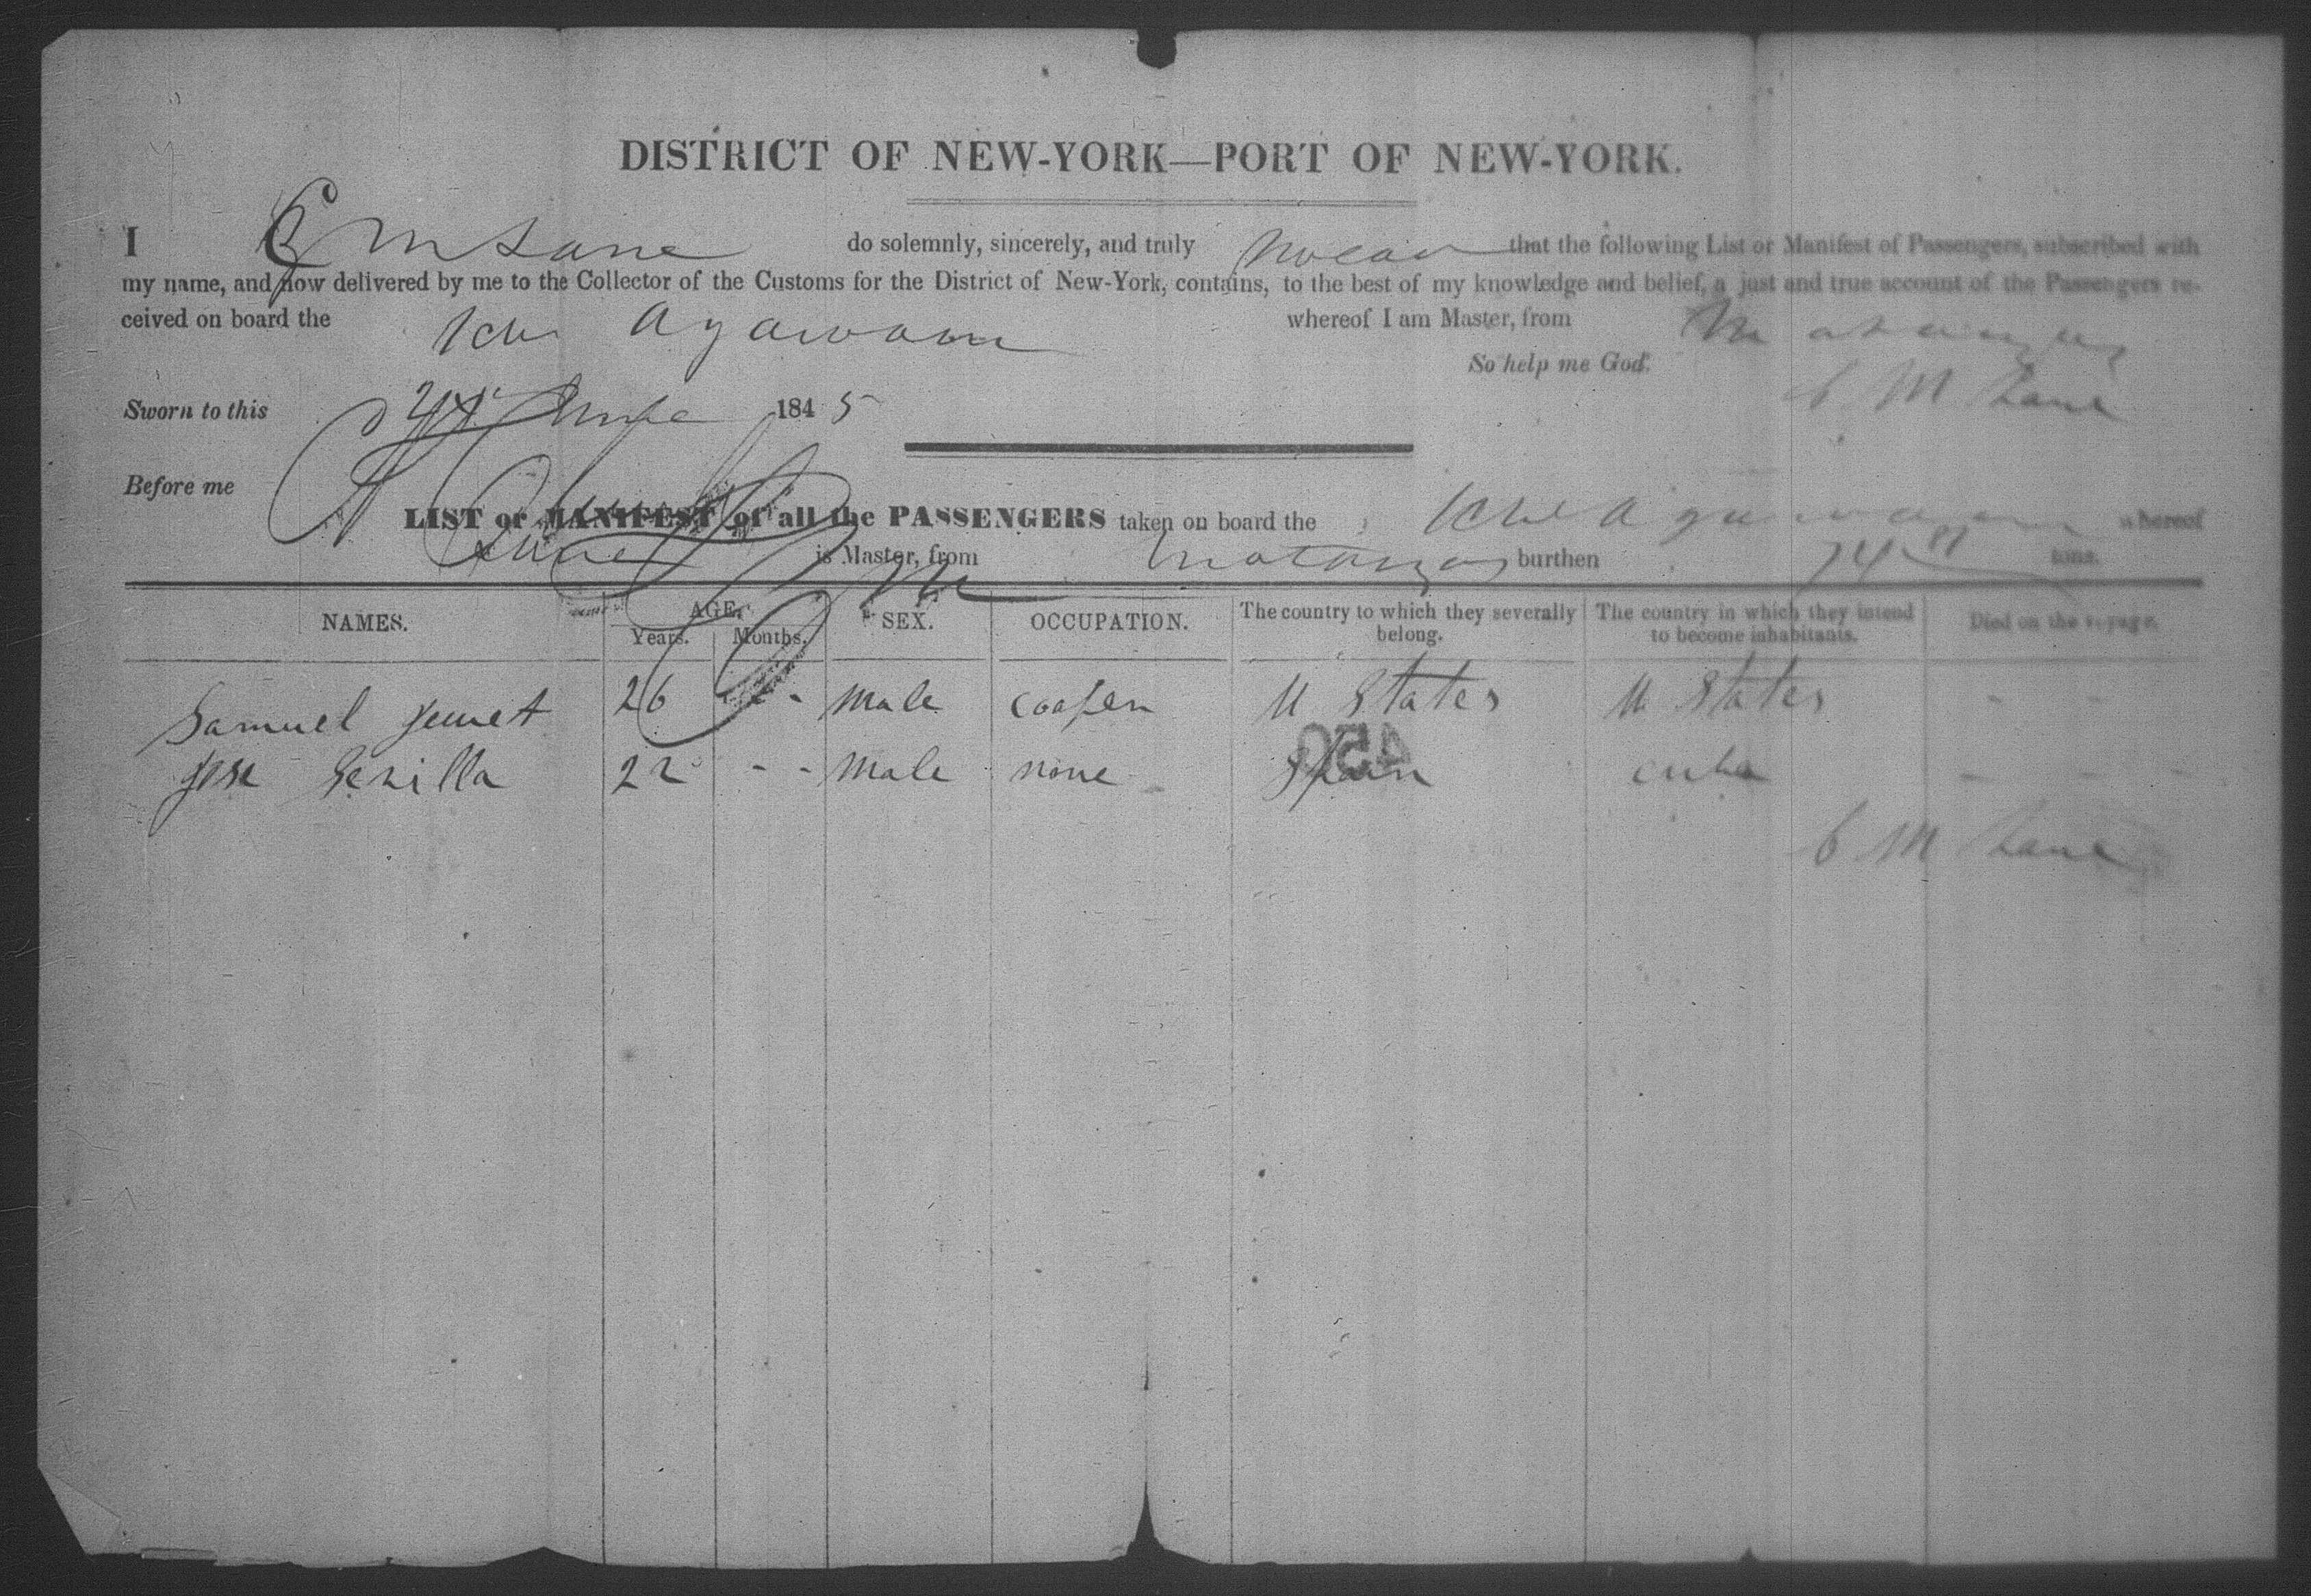 DISTRICT OF NEW-YORK—PORT OF NEW-YORK.
I C M Lane do solemnly, sincerely, and truly swear that the following List or Manifest of Passengers, subscribed with
my name, and now delivered by me to the Collector of the Customs for the District of New-York, contains, to the best of my knowledge and belief, a just and true account of the Passengers re-
ceived on board the Schr Agawam whereof I am Master, from Matanzas
So help me God.
C M Lane
Sworn to this June 1845
Before me
LIST or MANIFEST of all the PASSENGERS taken on board the Schr Agawam whereof
Lane is Master, from Matanzas burthen 74 tons.
NAMES. AGE. SEX. OCCUPATION. The country to which they severally belong. The country in which they intend to become inhabitants. Died on the voyage.
Years. Months.
Samuel 26 - - male cooper U States U States - -
Jose 22 - - male none Spain cuba - - -
450
C M Lane